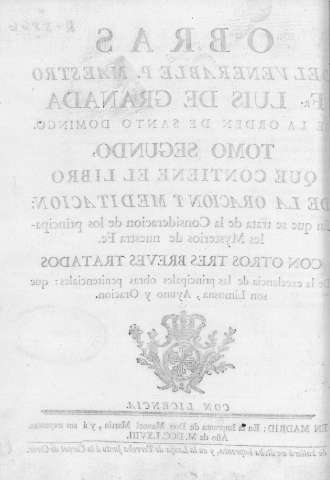 OBRAS
DEL VENERABLE P. MAESTRO
Fr. LUIS DE GRANADA
DE LA ORDEN DE SANTO DOMINGO.
TOMO SEGUNDO,
QUE CONTIENE EL LIBRO
DE LA ORACION Y MEDITACION:
En que se trata de la Consideracion de los principa-
les Mysterios de nuestra Fe.
CON OTROS TRES BREVES TRATADOS
De la excelencia de las principales obras penitenciales: que
son Limosna, Ayuno y Oracion.
CON LICENCIA.
EN MADRID: En la Imprenta de Don Manuel Martin, y á sus expensas.
Año de M.DCC.LXVIII.
Se hallará en dicha Imprenta, y en la Lonja de